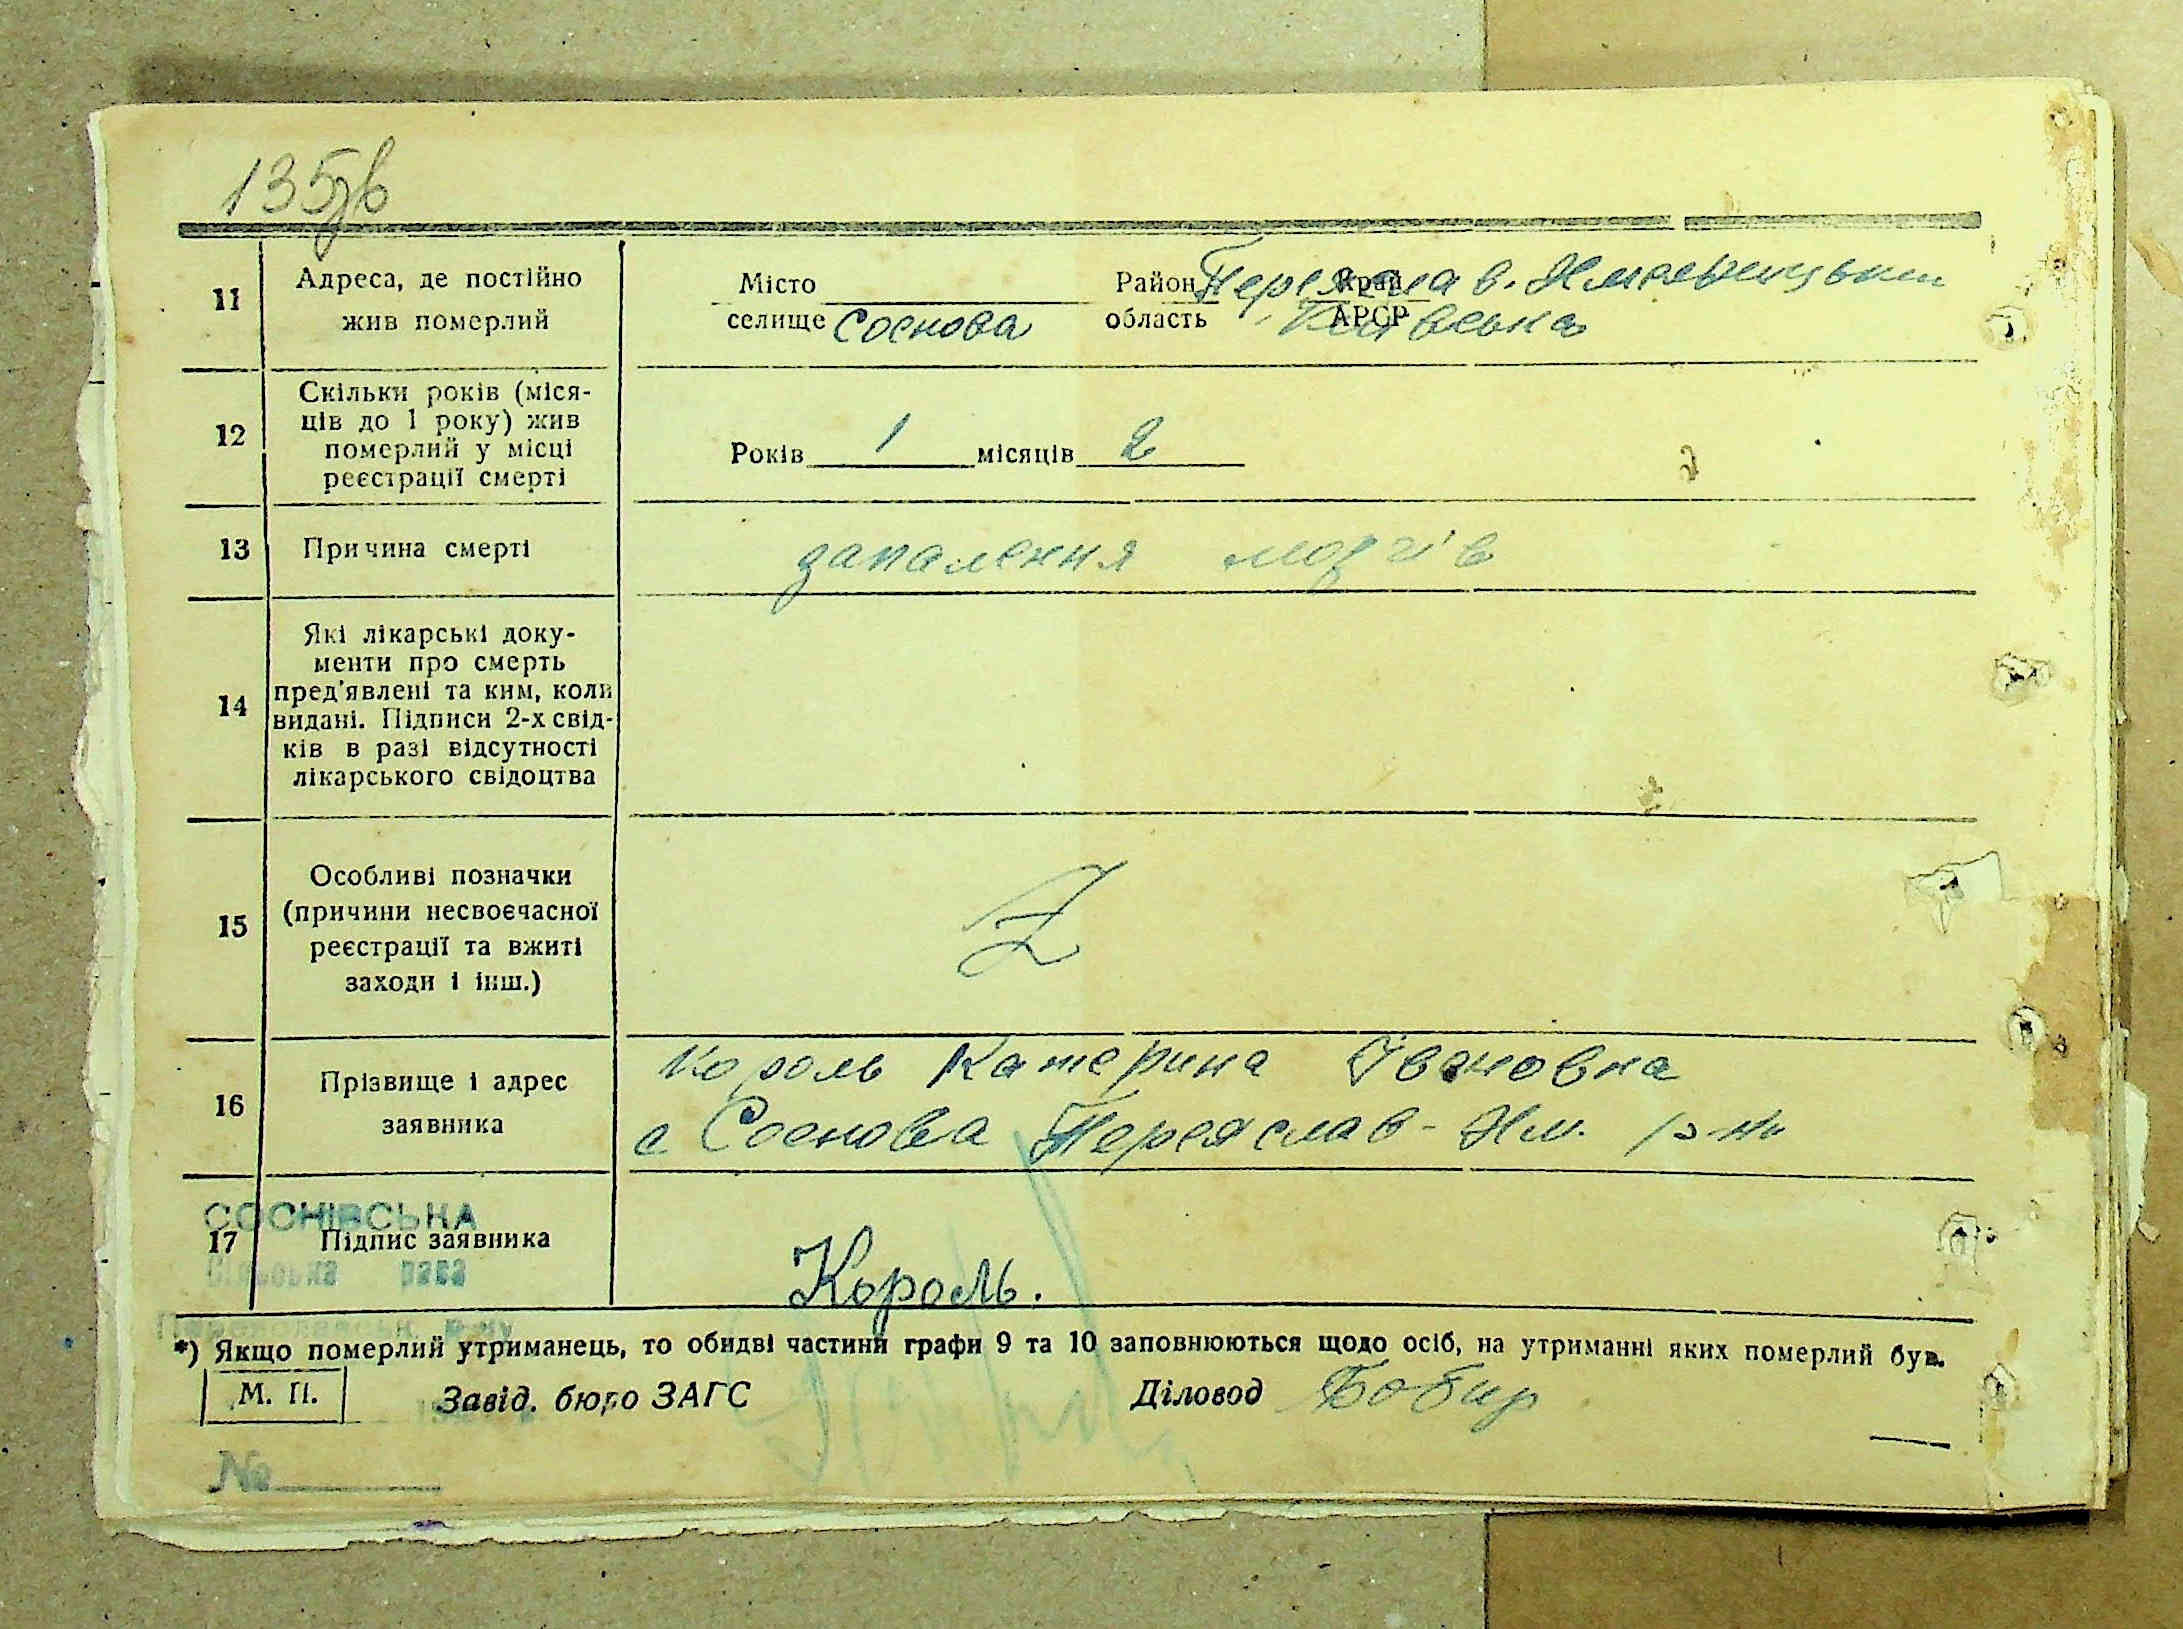 135зв
11 Адреса, де постійно жив померлий
Місто Район Переяслав. Хмельницький Край
селище Соснова область Київська АРСР
12 Скільки років (міся-
ців до 1 року) жив
померлий у місці
реєстрації смерті
Років 1 місяців 2
13 Причина смерті запалення мозгів
14 Які лікарські доку-
менти про смерть
пред'явлені та ким, коли
видані. Підписи 2-х свід-
ків в разі відсутності
лікарського свідоцтва
15 Особливі позначки
(причини несвоєчасної
реєстрації та вжиті
заходи і інш.)
Z
16 Прізвище і адрес
заявника
Король Катерина Івановна
с Соснова Переяслав-Хм. р-ну
СОСНІВСЬКА
17 Підпис заявника
Король.
Сільська рада
*) Якщо померлий утриманець, то обидві частини графи 9 та 10 заповнюються щодо осіб, на утриманні яких померлий був.
М. П. Завід. бюро ЗАГС Діловод Бобир
№